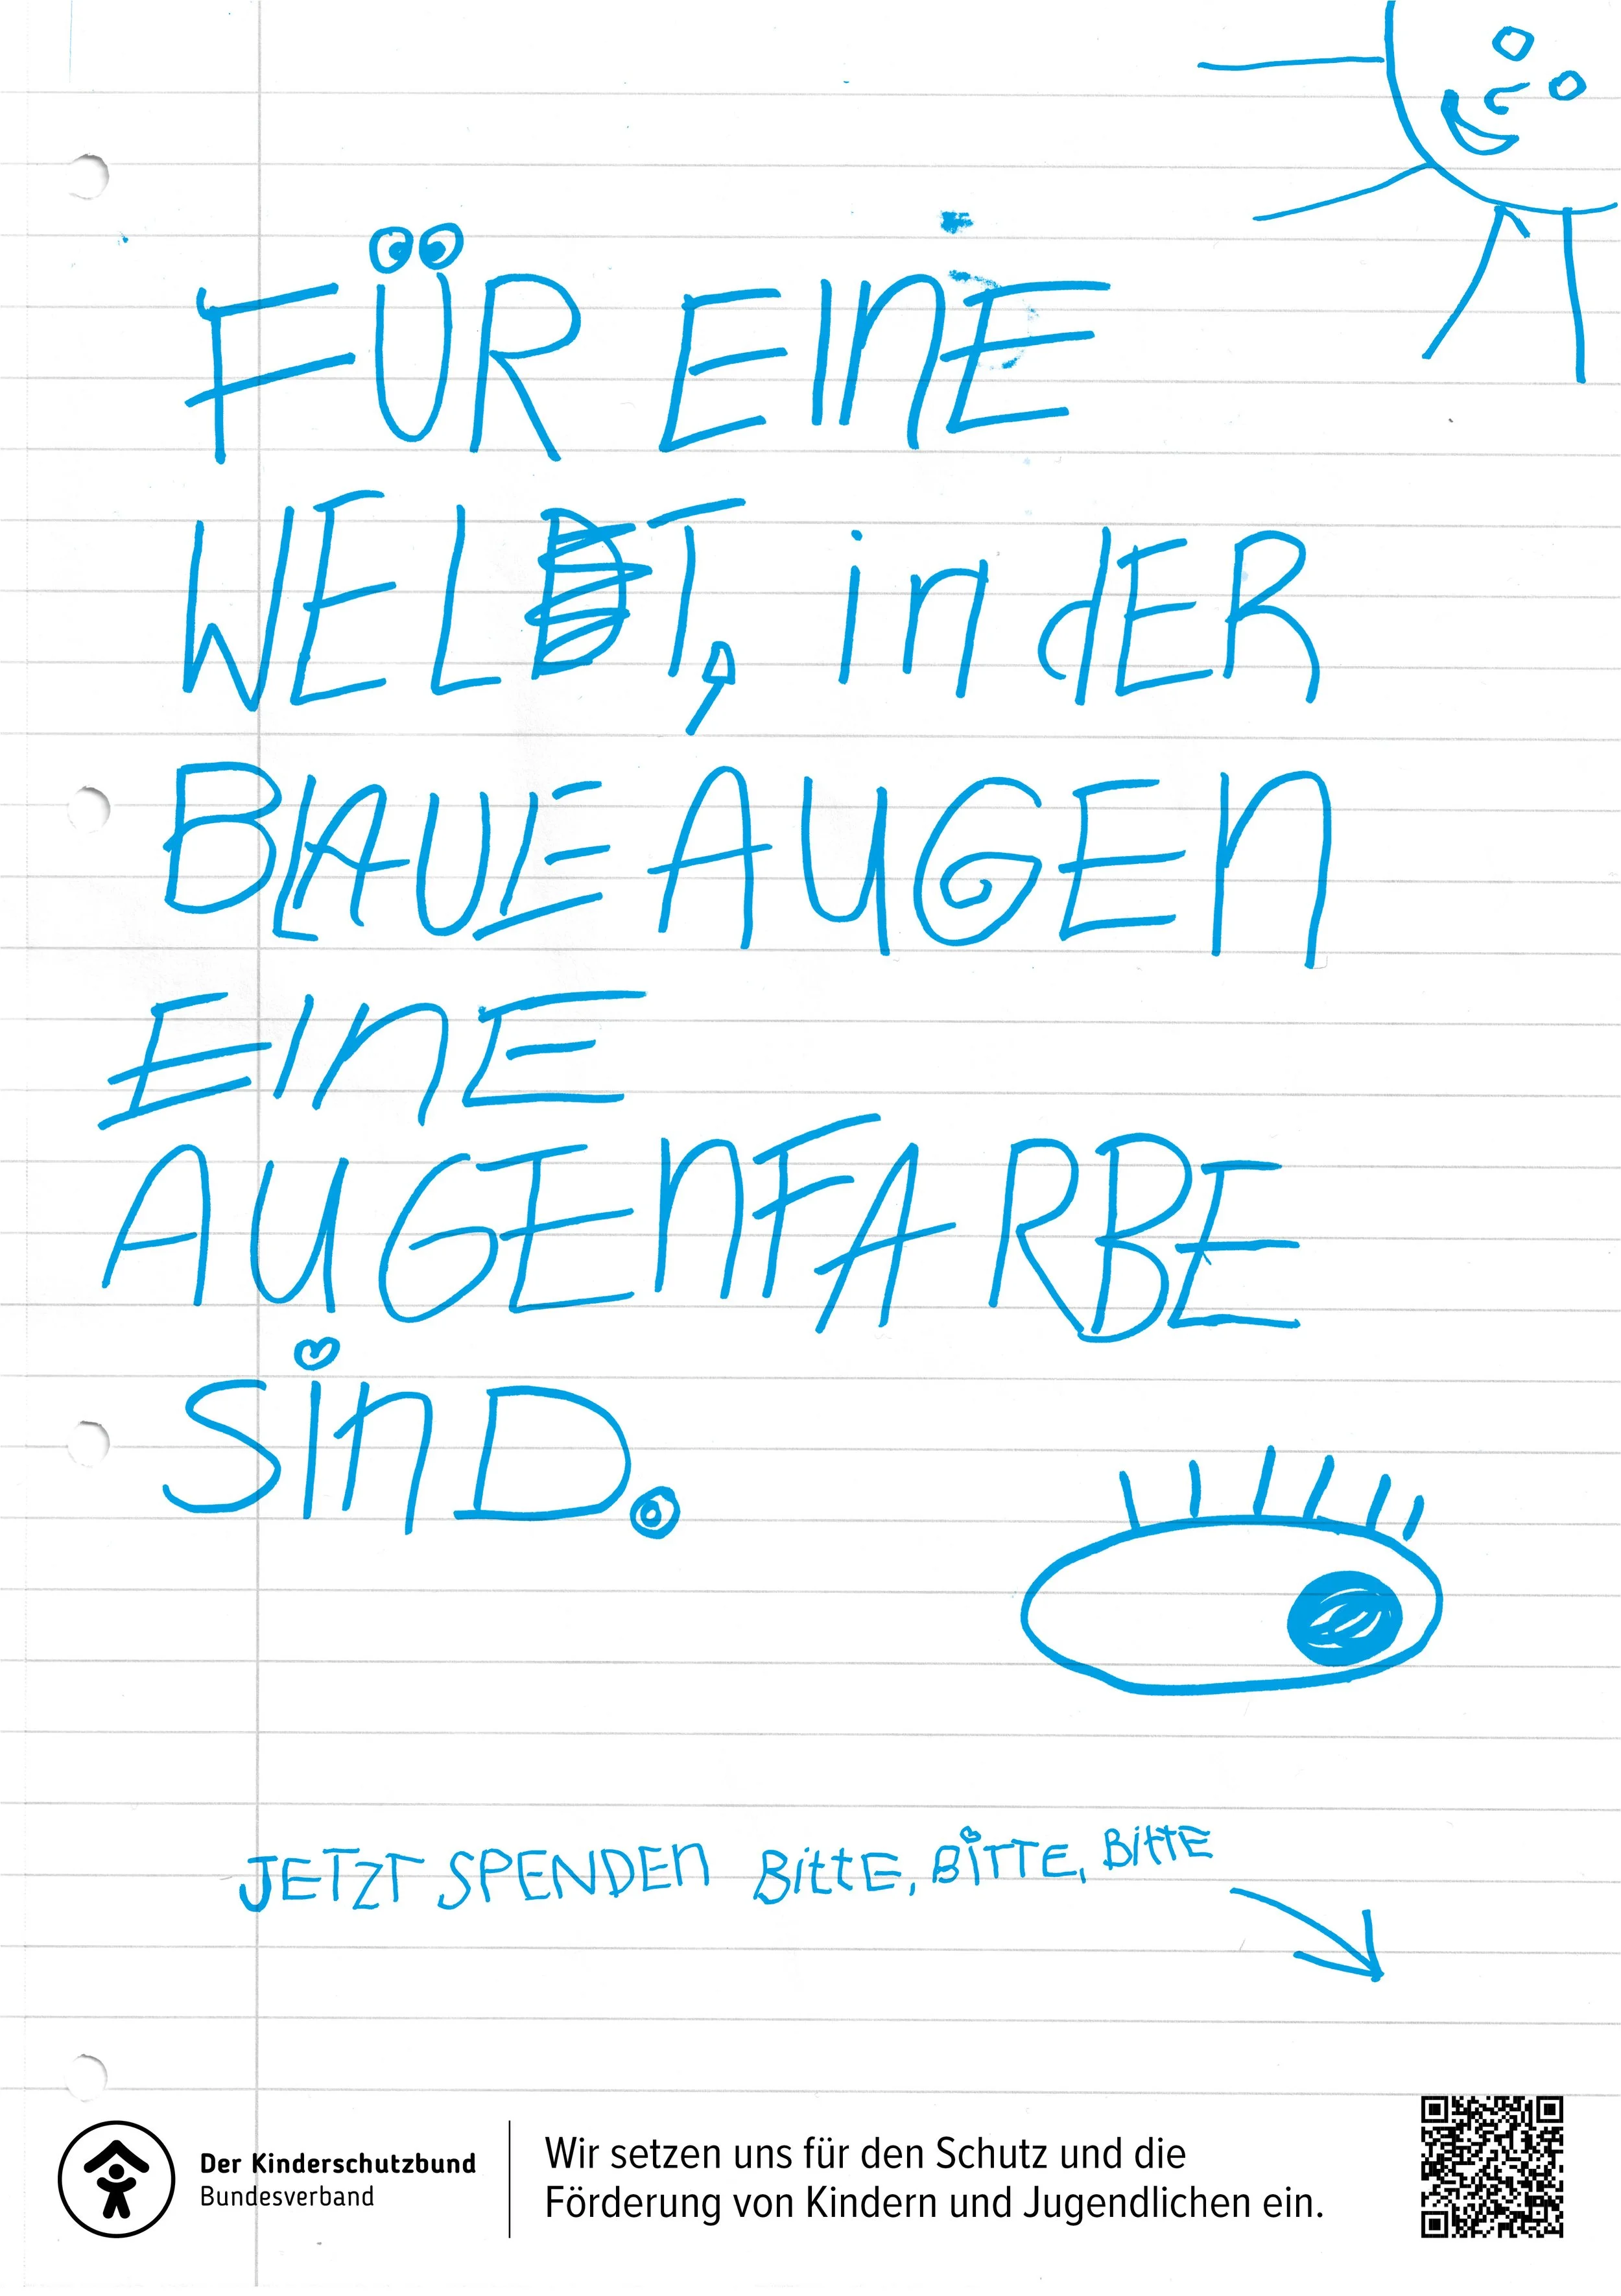 FÜR EINE
WELT, in dER
BLAUE AUGEN
EINE
AUGENFARBE
SIND.
JETZT SPENDEN BittE, BITTE, BittE
Der Kinderschutzbund
Bundesverband
Wir setzen uns für den Schutz und die
Förderung von Kindern und Jugendlichen ein.